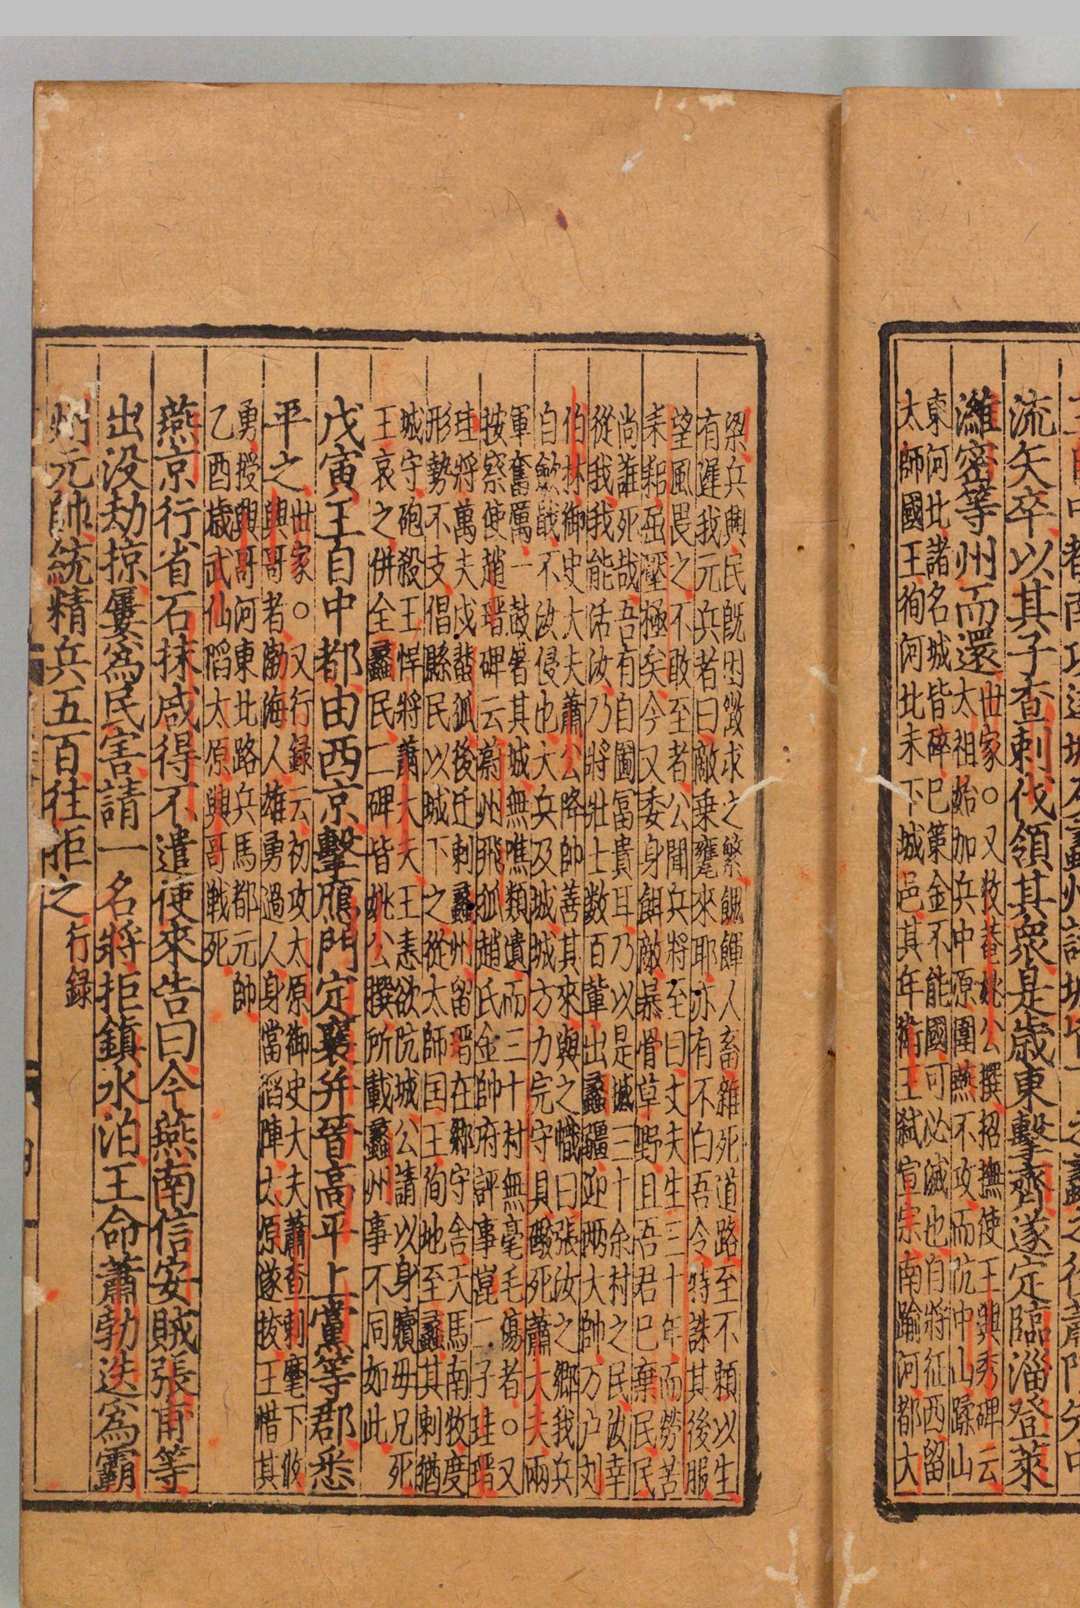 流矢卒以其子查剌代領其衆是歲東擊齊遂定臨淄登萊
濰密等州而還
世家○又牧菴姚公撰招撫使王興秀碑云
太祖始加兵中原圍燕不攻而阬中山蹂山
東河北諸名城皆碎已策金不能國可必滅也自將征西留
太師國王徇河北未下城邑其年衛王弑宣宗南踰河都大
梁兵與民旣困毀求之繁餽餫人畜雜死道路至不賴以生
有遲我元兵者曰敵乘麾來耶亦有不白吾令特誅其後服
望風畏之不敢至者公聞兵將至曰丈夫生三十年而勞苦
耒耜巫壓極矣今又委身餌敵暴骨草野且吾君已棄民民
尚誰死哉吾有自圖富貴耳乃以是城三十余村之民汝幸
從我我能活汝乃將壯士数百輩出蠡疆迎两大帥万户刘
伯林御史大夫蕭公降帥善其來與之幟曰張汝之鄉我兵
自歛戢不汝侵也大兵及城城方力完守具毆死蕭大夫兩
軍奮厲一鼓屠其城無噍類遺而三十村無毫毛傷者○又
按察使趙瑨碑云蔚州飛狐趙氏金帥府評事崑二子珪瑨
珪將萬夫戍蜚狐後迁刺蠡州留瑨在鄉守舎天馬南牧度
形勢不支倡縣民以城下之從太師囯王徇地至蠡其刺猶
城守砲殺王悍將蕭大夫王恚欲阬城公請以身贖母兄死
王哀之併全蠡民二碑皆姚公撰所載蠡州事不同如此
戊寅王自中都由西京擊鴈門定襄并晉高平上黨等郡悉
平之
世家○又行録云初攻太原御史大夫蕭查剌麾下攸
興哥者渤海人雄勇過人身當滔陣太原遂拔王惜其
勇授興哥河東北路兵馬都元帥
乙酉歳武仙䧟太原興哥戰死
燕京行省石抹咸得不遣使來告曰今燕南信安賊張甫等
出没劫掠屢為民害請一名將拒鎮水泊王命蕭勃迭為霸
州元帥統精兵五百往拒之
行録